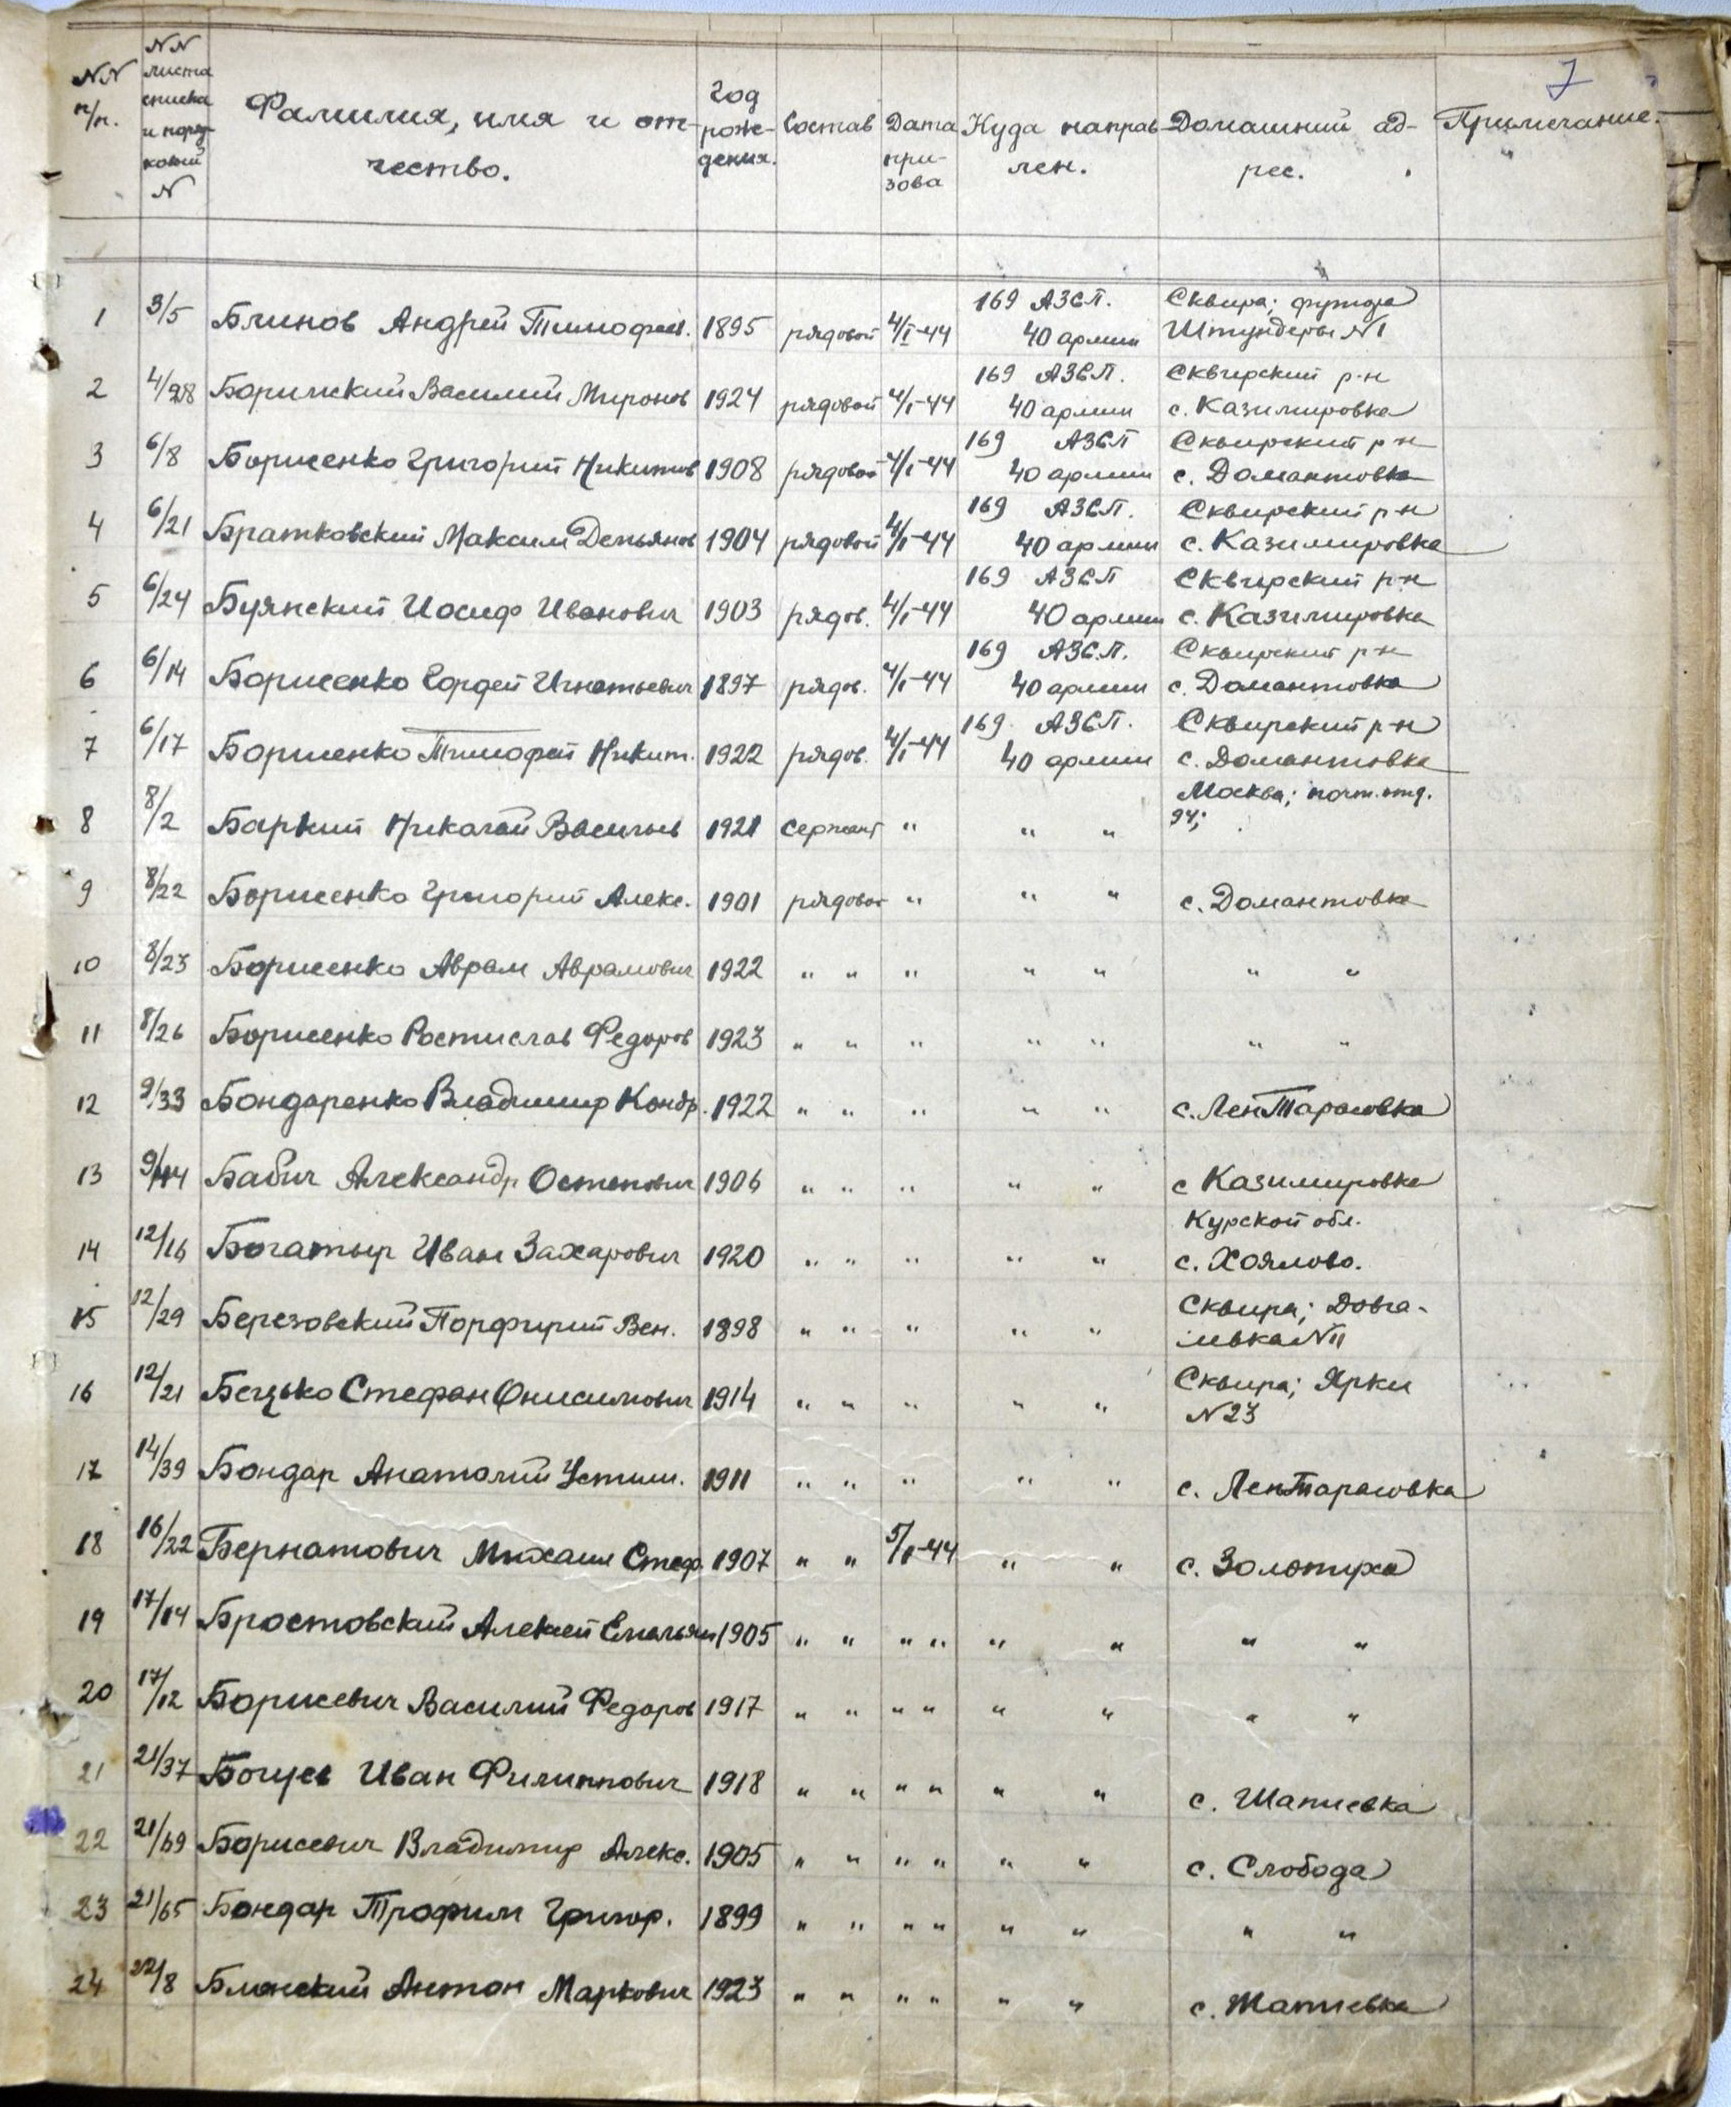 7
NN п/п. NN листа списка и порядковый N Фамилия, имя и отчество. Год рождения. Состав Дата призова Куда направлен. Домашний адрес. Примечание.
169 АЗСП. Сквира; футора
1 3/5 Блинов Андрей Тимофеев. 1895 рядовой 4/I-44 40 армии Штундеры N1
169 АЗСП. Сквирский р-н
2 4/28 Боримский Василий Миронов 1924 рядовой 4/I-44 40 армии с. Казимировка
169 АЗСП Сквирский р-н
3 6/8 Борисенко Григорий Никитов 1908 рядовой 4/I-44 40 армии с. Домантовка
169 АЗСП. Сквирский р-н
4 6/21 Братковский Максим Демьянов 1904 рядовой 4/I-44 40 армии с. Казимировка
169 АЗСП Сквирский р-н
5 6/24 Буянский Иосиф Иванович 1903 рядов. 4/I-44 40 армии с. Казимировка
169 АЗСП. Сквирский р-н
6 6/14 Борисенко Гордей Игнатьевич 1897 рядов. 4/I-44 40 армии с. Домантовка
169 АЗСП. Сквирский р-н
7 6/17 Борисенко Тимофей Никит. 1922 рядов. 4/I-44 40 армии с. Домантовка
Москва; почт. отд.
8 8/2 Баркий Николай Васильев 1921 сержант " " " 94;
9 8/22 Борисенко Григорий Алекс. 1901 рядовой " " " с. Домантовка
10 8/23 Борисенко Аврам Аврамович 1922 " " " " " " "
11 8/26 Борисенко Ростислав Федоров 1923 " " " " " " "
12 9/33 Бондаренко Владимир Кондр. 1922 " " " " " с. ЛенТарасовка
13 9/44 Бабич Александр Остапович 1906 " " " " " с Казимировка
Курской обл.
14 12/16 Богатыр Иван Захарович 1920 " " " " " с. Хоялово.
Сквира; Довга-
15 12/29 Березовский Порфирий Вен. 1898 " " " " " ливка N11
Сквира; Ярки
16 12/21 Бецько Стефан Онисимович 1914 " " " " " N23
17 14/39 Бондар Анатолий Устим. 1911 " " " " " с. ЛенТарасовка
18 16/22 Бернатович Михаил Стеф. 1907 " " 5/I-44 " " с. Золотуха
19 17/14 Бростовский Алексей Емельян 1905 " " " " " " " "
20 17/12 Борисевич Василий Федоров 1917 " " " " " " " "
21 21/37 Богуев Иван Филиппович 1918 " " " " " " с. Шапиевка
22 21/69 Борисевич Владимир Алекс. 1905 " " " " " " с. Слобода
23 21/65 Бондар Трофим Григор. 1899 " " " " " " " "
24 22/8 Блонский Антон Маркович 1923 " " " " " " с. Шапиевка